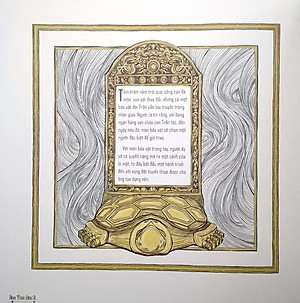 Tám trăm năm trôi qua, sông cạn đá
mòn, vạn vật thay đổi, nhưng có một
báu vật đời Trần vẫn lưu truyền trong
nhân gian. Người ta tin rằng, với hàng
ngàn hàng vạn cháu con Trần tộc, đến
ngày nào đó, món báu vật sẽ chọn một
người đặc biệt để gửi trao.
Với món báu vật trong tay, người ấy
sẽ có quyền năng mở ra một cánh cửa
kì mật, từ đây bắt đầu một hành trình
đến với vùng đất huyền thoại được cha
ông tạo dựng nên.